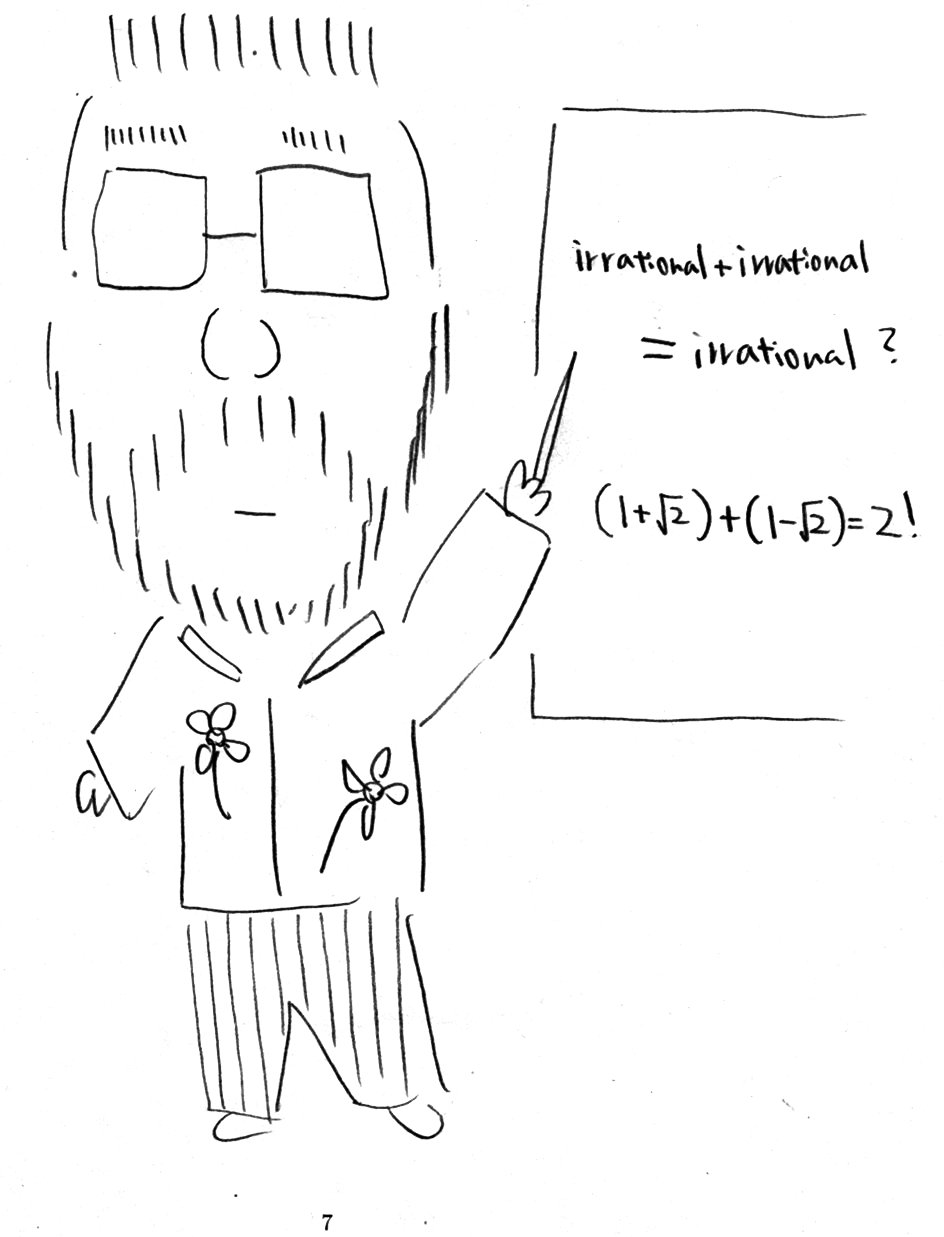 irrational + irrational
= irrational ?
(1+√2)+(1-√2)=2!
7